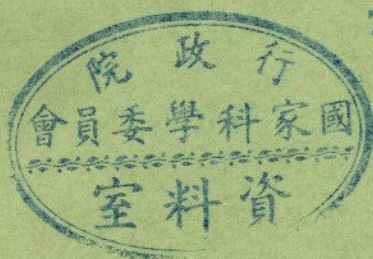 行政院
國家科學委員會
資料室